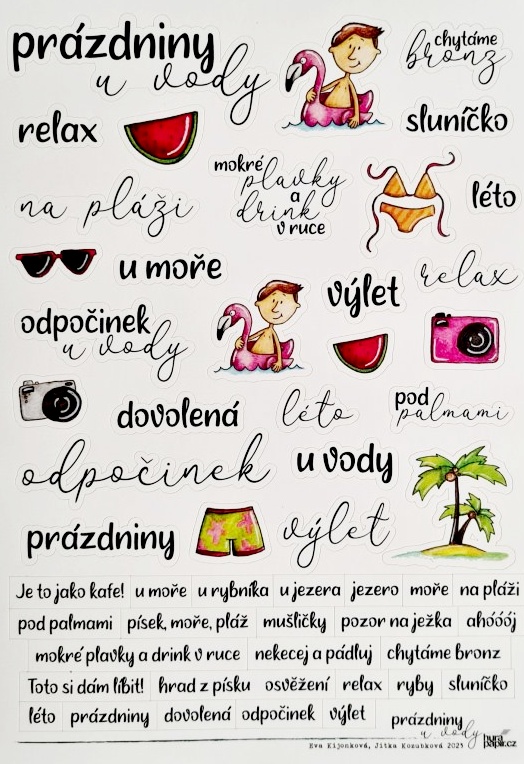 prázdniny
u vody
chytáme
bronz
relax
sluníčko
mokré
plavky
a
drink
v ruce
na pláži
léto
u moře
výlet
relax
odpočinek
u vody
dovolená
léto
pod
palmami
odpočinek
u vody
prázdniny
výlet
Je to jako kafe! u moře u rybníka u jezera jezero moře na pláži
pod palmami písek, moře, pláž mušličky pozor na ježka ahóóój
mokré plavky a drink v ruce nekecej a pádluj chytáme bronz
Toto si dám líbit! hrad z písku osvěžení relax ryby sluníčko
léto prázdniny dovolená odpočinek výlet prázdniny
u vody
Eva Kijonková, Jitka Kozubková 2023
hurá
papír.cz